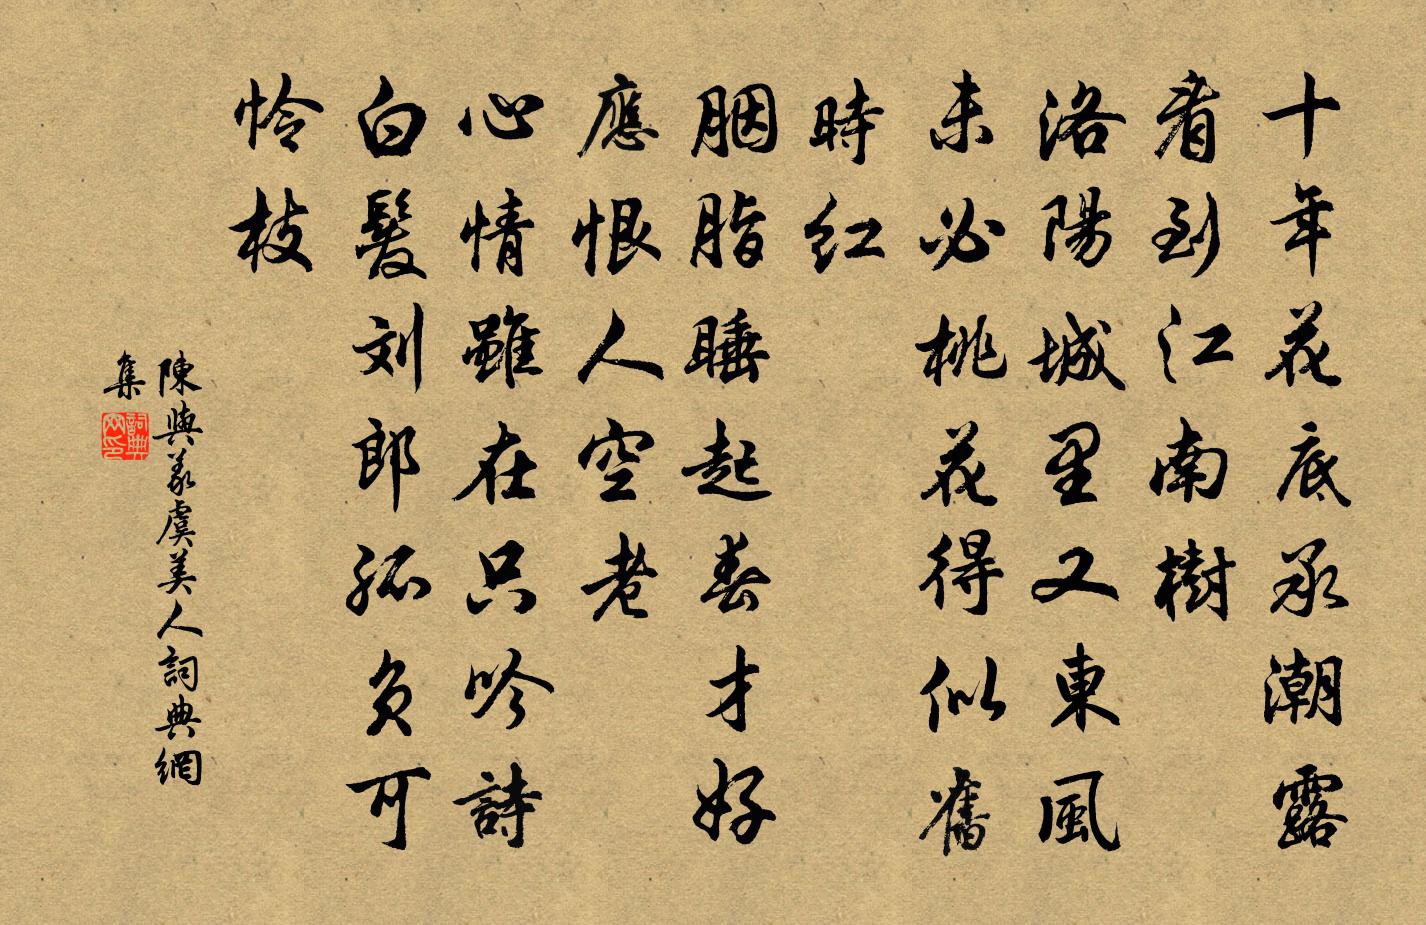 十年花底承潮露
看到江南樹
洛陽城里又東風
未必桃花得似舊
時红
胭脂睡起春才好
應恨人空老
心情雖在只吟詩
白髮刘郎孤負可
怜枝
陳與義虞美人詞典網
集
詞典
网印